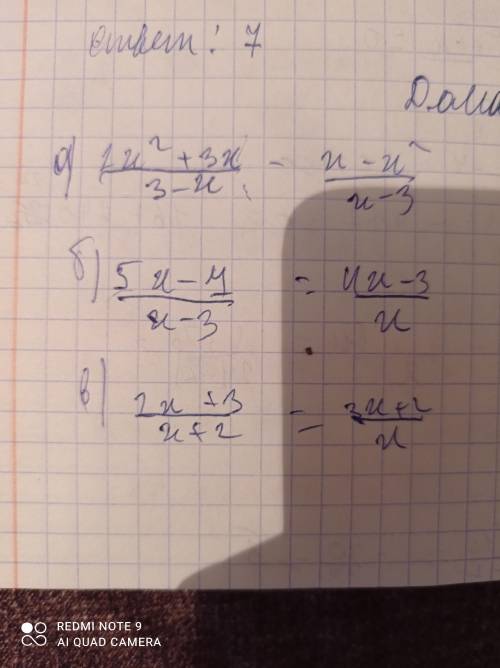 Ответ: 7
Дома
а) (2x² + 3x)/(3 - x) = (x - x²)/(x - 3)
б) (5x - 4)/(x - 3) = (4x - 3)/x
в) (2x + 3)/(x + 2) = (3x + 2)/x
REDMI NOTE 9
AI QUAD CAMERA